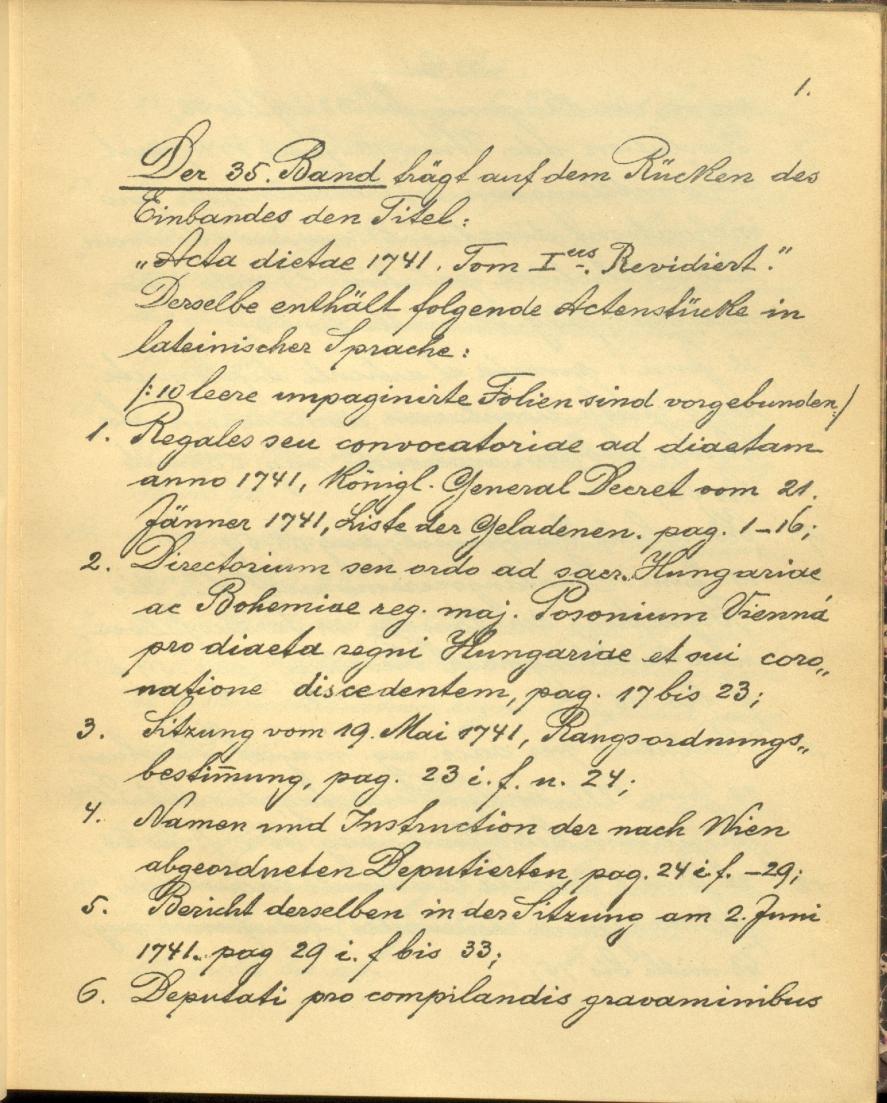 1.
Der 35. Band trägt auf dem Rücken des
Einbandes den Titel:
„Acta dietae 1741. Tom I us. Revidiert.“
Derselbe enthält folgende Actenstücke in
lateinischer Sprache:
/: 10 leere unpaginirte Folien sind vorgebunden :/
1. Regales seu convocatoriae ad diaetam
anno 1741, Königl. General Decret vom 21.
Jänner 1741, Liste der Geladenen. pag. 1–16;
2. Directorium seu ordo ad sacr. Hungariae
ac Bohemiae reg. maj. Posonium Vienná
pro diaeta regni Hungariae et sui coro„
natione discedentem, pag. 17 bis 23;
3. Sitzung vom 19. Mai 1741, Rangsordnungs„
bestim̅ung, pag. 23 i. f. u. 24;
4. Namen und Instruction der nach Wien
abgeordneten Deputierten, pag. 24 i. f. –29;
5. Bericht derselben in der Sitzung am 2. Juni
1741. pag 29 i. f bis 33;
6. Deputati pro compilandis gravaminibus